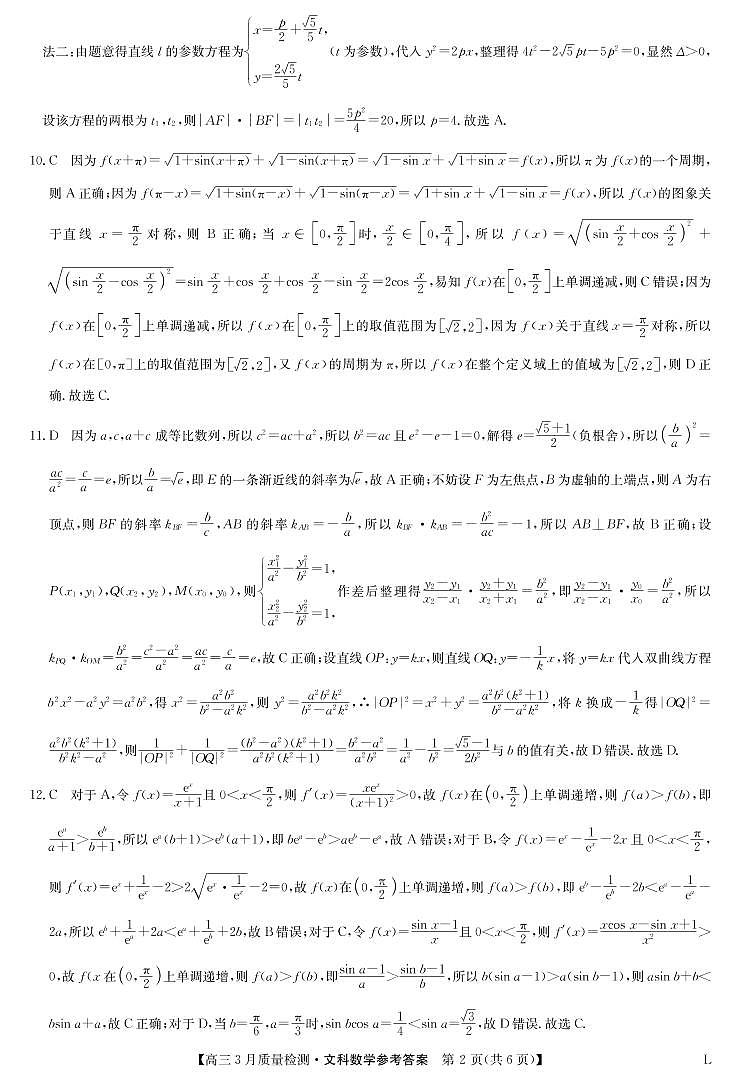 法二:由题意得直线 l 的参数方程为 { x=p/2+√5/5 t, y=2√5/5 t (t 为参数),代入 y²=2px,整理得 4t²-2√5pt-5p²=0,显然 Δ>0,
设该方程的两根为 t₁,t₂,则|AF|·|BF|=|t₁t₂|=5p²/4=20,所以 p=4.故选 A.
10.C 因为 f(x+π)=√(1+sin(x+π))+√(1-sin(x+π))=√(1-sin x)+√(1+sin x)=f(x),所以 π 为 f(x)的一个周期,
则 A 正确;因为 f(π-x)=√(1+sin(π-x))+√(1-sin(π-x))=√(1+sin x)+√(1-sin x)=f(x),所以 f(x)的图象关
于直线 x=π/2 对称,则 B 正确;当 x∈[0,π/2]时,x/2∈[0,π/4],所以 f(x)=√((sin x/2+cos x/2)²)+
√((sin x/2-cos x/2)²)=sin x/2+cos x/2+cos x/2-sin x/2=2cos x/2,易知 f(x)在[0,π/2]上单调递减,则 C 错误;因为
f(x)在[0,π/2]上单调递减,所以 f(x)在[0,π/2]上的取值范围为[√2,2],因为 f(x)关于直线 x=π/2 对称,所以
f(x)在[0,π]上的取值范围为[√2,2],又 f(x)的周期为 π,所以 f(x)在整个定义域上的值域为[√2,2],则 D 正
确.故选 C.
11.D 因为 a,c,a+c 成等比数列,所以 c²=ac+a²,所以 b²=ac 且 e²-e-1=0,解得 e=(√5+1)/2(负根舍),所以(b/a)²=
ac/a²=c/a=e,所以 b/a=√e,即 E 的一条渐近线的斜率为√e,故 A 正确;不妨设 F 为左焦点,B 为虚轴的上端点,则 A 为右
顶点,则 BF 的斜率 k_BF=b/c,AB 的斜率 k_AB=-b/a,所以 k_BF·k_AB=-b²/ac=-1,所以 AB⊥BF,故 B 正确;设
P(x₁,y₁),Q(x₂,y₂),M(x₀,y₀),则 { x₁²/a²-y₁²/b²=1, x₂²/a²-y₂²/b²=1, 作差后整理得 (y₂-y₁)/(x₂-x₁)·(y₂+y₁)/(x₂+x₁)=b²/a²,即 (y₂-y₁)/(x₂-x₁)·y₀/x₀=b²/a²,所以
k_PQ·k_OM=b²/a²=(c²-a²)/a²=ac/a²=c/a=e,故 C 正确;设直线 OP:y=kx,则直线 OQ:y=-1/k x,将 y=kx 代入双曲线方程
b²x²-a²y²=a²b²,得 x²=a²b²/(b²-a²k²),则 y²=a²b²k²/(b²-a²k²),∴|OP|²=x²+y²=a²b²(k²+1)/(b²-a²k²),将 k 换成-1/k 得|OQ|²=
a²b²(k²+1)/(b²k²-a²),则 1/|OP|²+1/|OQ|²=(b²-a²)(k²+1)/(a²b²(k²+1))=(b²-a²)/(a²b²)=1/a²-1/b²=(√5-1)/(2b²)与 b 的值有关,故 D 错误.故选 D.
12.C 对于 A,令 f(x)=eˣ/(x+1)且 0<x<π/2,则 f′(x)=xeˣ/(x+1)²>0,故 f(x)在(0,π/2)上单调递增,则 f(a)>f(b),即
eᵃ/(a+1)>eᵇ/(b+1),所以 eᵃ(b+1)>eᵇ(a+1),即 beᵃ-eᵇ>aeᵇ-eᵃ,故 A 错误;对于 B,令 f(x)=eˣ-1/eˣ-2x 且 0<x<π/2,
则 f′(x)=eˣ+1/eˣ-2>2√(eˣ·1/eˣ)-2=0,故 f(x)在(0,π/2)上单调递增,则 f(a)>f(b),即 eᵇ-1/eᵇ-2b<eᵃ-1/eᵃ-
2a,所以 eᵇ+1/eᵃ+2a<eᵃ+1/eᵇ+2b,故 B 错误;对于 C,令 f(x)=(sin x-1)/x 且 0<x<π/2,则 f′(x)=(xcos x-sin x+1)/x²>
0,故 f(x 在(0,π/2)上单调递增,则 f(a)>f(b),即(sin a-1)/a>(sin b-1)/b,所以 b(sin a-1)>a(sin b-1),则 asin b+b<
bsin a+a,故 C 正确;对于 D,当 b=π/6,a=π/3 时,sin bcos a=1/4<sin a=√3/2,故 D 错误.故选 C.
【高三 3 月质量检测·文科数学参考答案 第 2 页(共 6 页)】 L